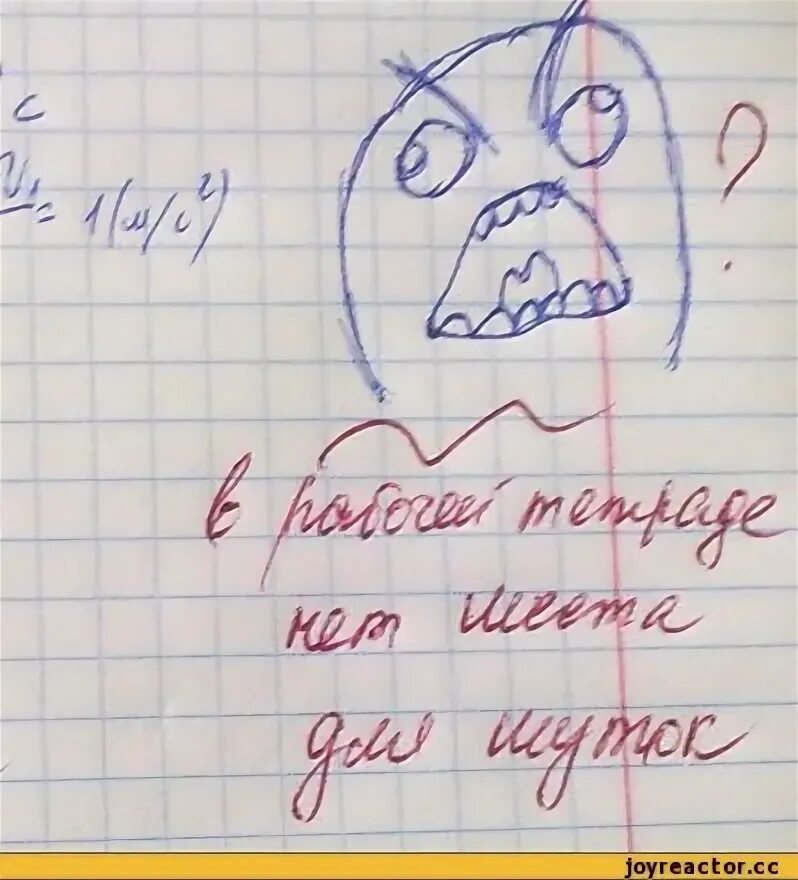 с
V₁
= 1(м/с²)
?
в рабочей тетраде
нет места
для шуток
joyreactor.cc